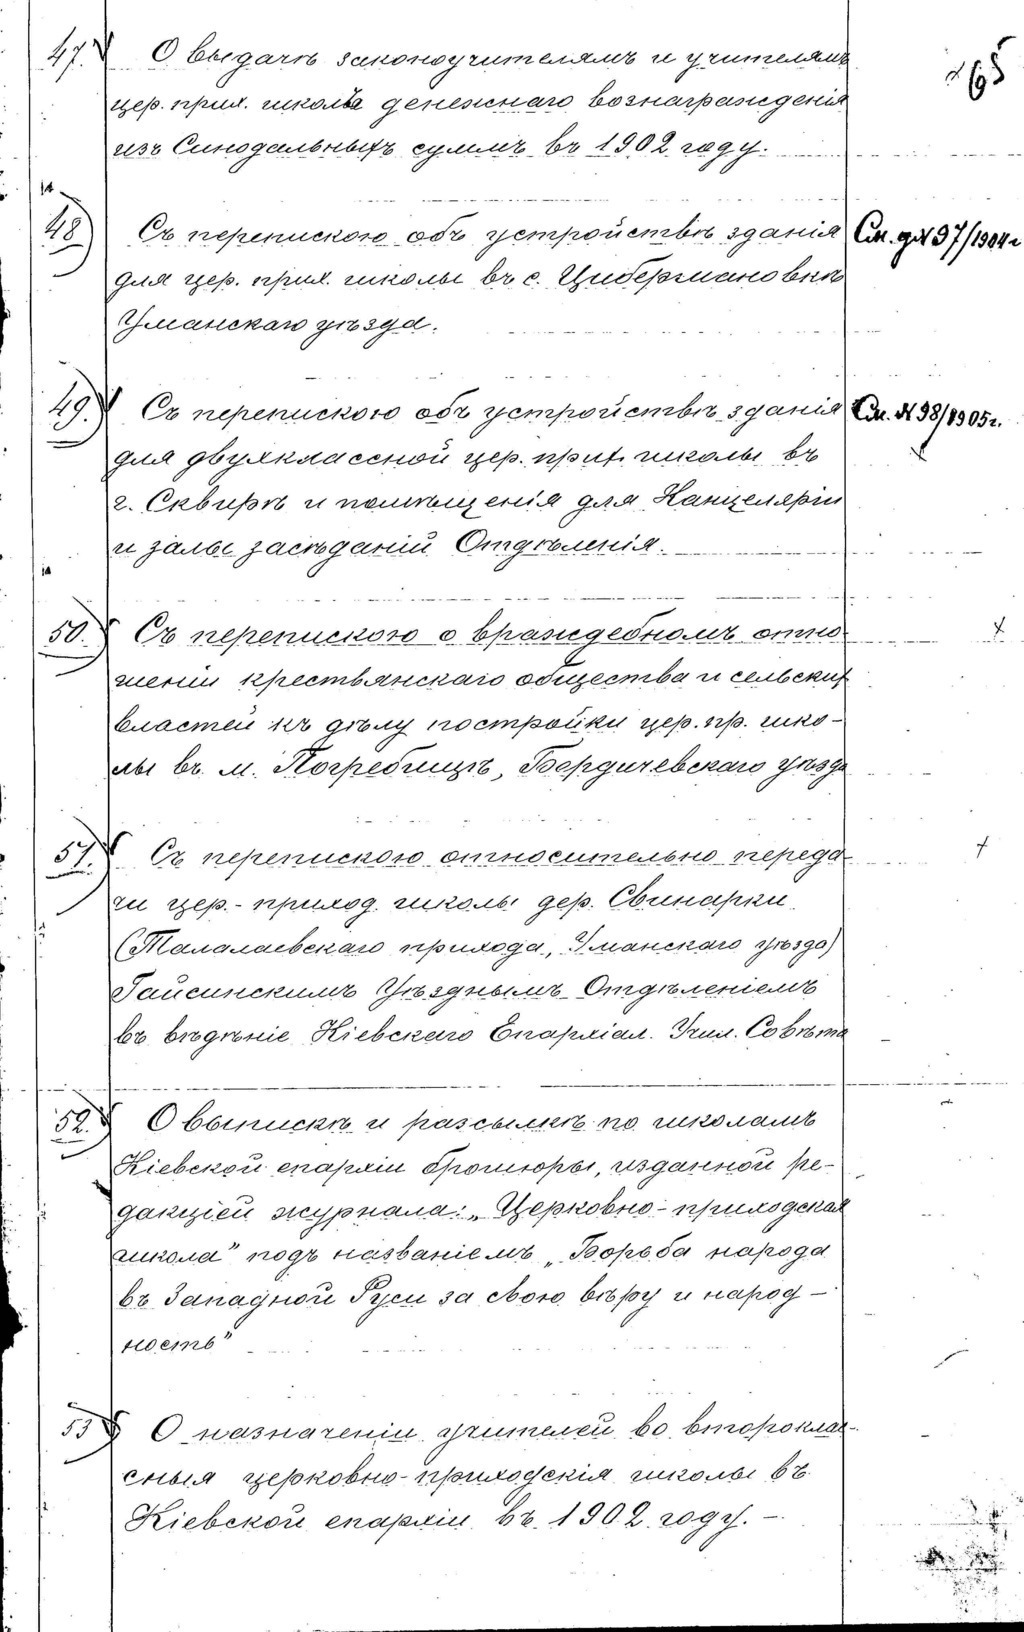 47. О выдачѣ законоучителямъ и учителямъ
цер. прих. школъ денежнаго вознагражденія
изъ Синодальныхъ суммъ въ 1902 году.
65
48) Съ перепискою объ устройствѣ зданія
для цер. прих. школы въ с. Цибермановкѣ
Уманскаго уѣзда.
См. д. № 97/1904 г
49. Съ перепискою объ устройствѣ зданія
для двухклассной цер. прих. школы въ
г. Сквирѣ и помѣщенія для Канцеляріи
и залы засѣданій Отдѣленія.
См. № 98/1905 г.
50. Съ перепискою о враждебномъ отно-
шеніи крестьянскаго общества и сельских
властей къ дѣлу постройки цер. пр. шко-
лы въ м. Погребищѣ, Бердичевскаго уѣзда
51. Съ перепискою относительно переда-
чи цер.-приход. школы дер. Свинарки
(Талалаевскаго прихода, Уманскаго уѣзда)
Гайсинскимъ Уѣзднымъ Отдѣленіемъ
въ вѣдѣніе Кіевскаго Епархіал. Учил. Совѣта
52. О выпискѣ и разсылкѣ по школамъ
Кіевской епархіи брошюры, изданной ре-
дакціей журнала: „Церковно-приходская
школа" подъ названіемъ „Борьба народа
въ Западной Руси за свою вѣру и народ-
ность"
53 О назначеніи учителей во второклас-
сныя церковно-приходскія школы въ
Кіевской епархіи въ 1902 году. –